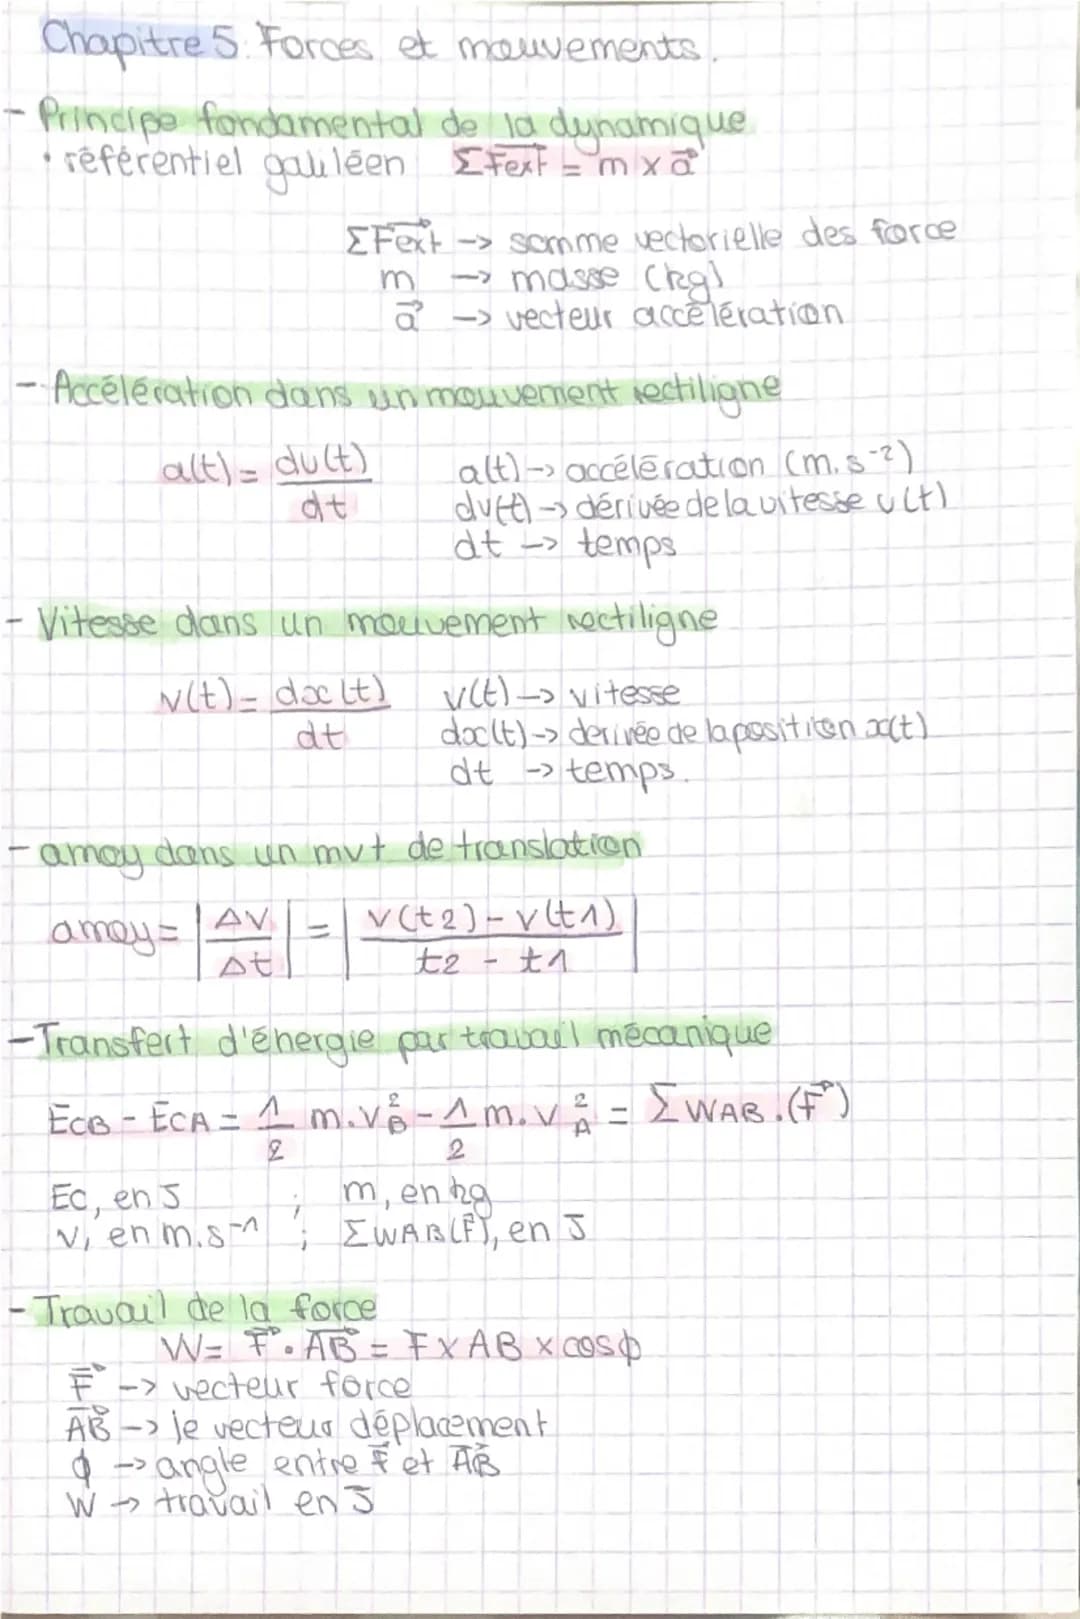 Chapitre 5: Forces et mouvements.
- Principe fondamental de la dynamique
• référentiel galiléen ΣF⃗ext = m x a⃗
ΣF⃗ext -> somme vectorielle des force
m -> masse (kg)
a⃗ -> vecteur accélération
- Accélération dans un mouvement rectiligne
a(t) = dv(t)/dt
a(t) -> accélération (m.s⁻²)
dv(t) -> dérivée de la vitesse v(t)
dt -> temps
- Vitesse dans un mouvement rectiligne
v(t) = dx(t)/dt
v(t) -> vitesse
dx(t) -> derivée de la position x(t)
dt -> temps.
- amoy dans un mvt de translation
amoy = |ΔV/Δt| = |v(t2) - v(t1)/t2 - t1|
- Transfert d'énergie par travail mécanique
EcB - EcA = 1/2 m.v²B - 1/2 m.v²A = ΣWAB.(F⃗)
Ec, en J ; m, en kg
v, en m.s⁻¹ ; ΣWAB(F⃗), en J
- Travail de la force
W = F⃗ . AB⃗ = F x AB x cosϕ
F⃗ -> vecteur force
AB⃗ -> le vecteur déplacement
ϕ -> angle entre F⃗ et AB⃗
W -> travail en J